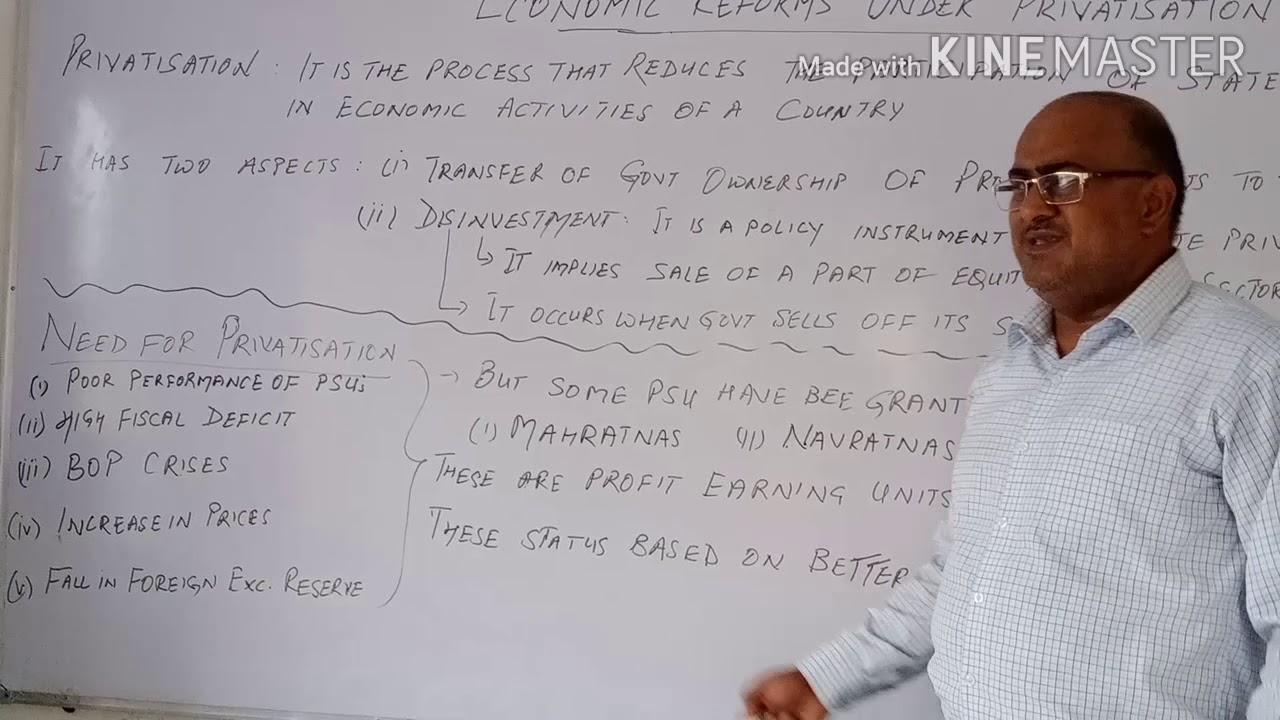 ECONOMIC REFORMS UNDER PRIVATISATION
Made with KINEMASTER
PRIVATISATION : IT IS THE PROCESS THAT REDUCES THE PARTICIPATION OF STATE
IN ECONOMIC ACTIVITIES OF A COUNTRY
IT HAS TWO ASPECTS : (i) TRANSFER OF GOVT OWNERSHIP OF TO
(ii) DISINVESTMENT : IT IS A POLICY INSTRUMENT
IT IMPLIES SALE OF A PART OF EQUIT
IT OCCURS WHEN GOVT SELLS OFF ITS S
NEED FOR PRIVATISATION
(i) POOR PERFORMANCE OF PSUs
(ii) HIGH FISCAL DEFICIT
(iii) BOP CRISES
(iv) INCREASE IN PRICES
(v) FALL IN FOREIGN EXC. RESERVE
→ BUT SOME PSU HAVE BEE GRANT
(i) MAHRATNAS (II) NAVRATNAS
THESE ARE PROFIT EARNING UNITS
THESE STATUS BASED ON BETTER